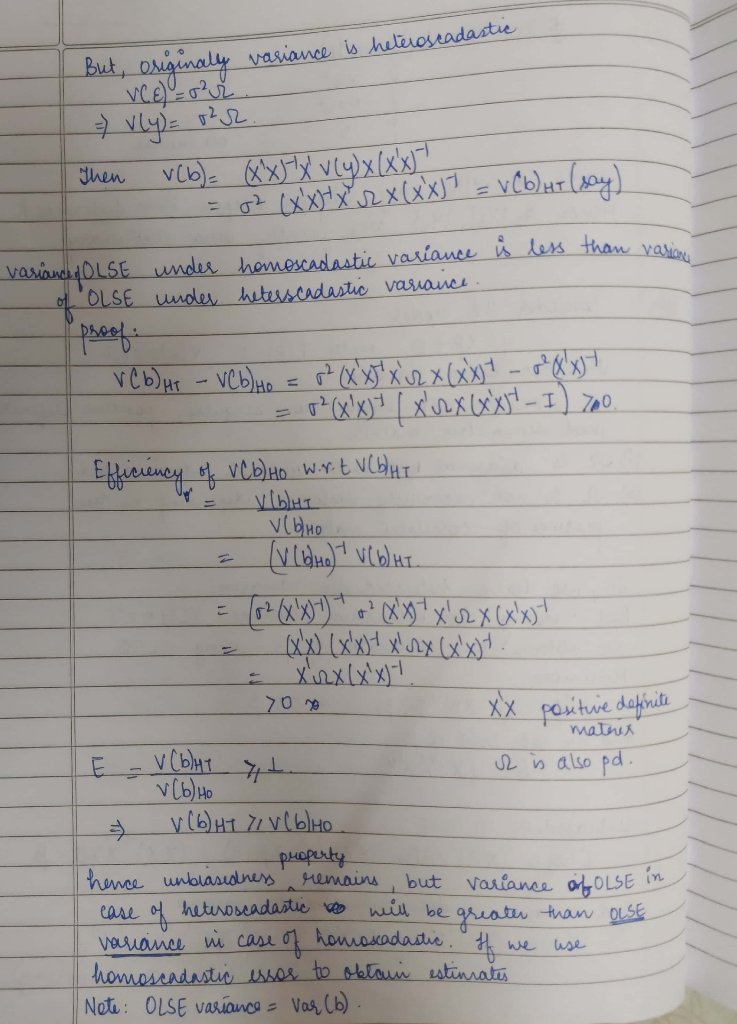 But, originaly variance is heteroscadastic
V(ε) = σ²Ω
⇒ V(y) = σ²Ω
Then V(b) = (X'X)⁻¹X' V(y) X (X'X)⁻¹
= σ² (X'X)⁻¹X' Ω X (X'X)⁻¹ = V(b)HT (say)
variance of OLSE under homoscadastic variance is less than variance
of OLSE under heterscadastic variance.
proof:
V(b)HT - V(b)HO = σ²(X'X)⁻¹X'ΩX(X'X)⁻¹ - σ²(X'X)⁻¹
= σ²(X'X)⁻¹ [X'ΩX(X'X)⁻¹ - I] ≥0.
Efficiency of V(b)HO w.r.t V(b)HT
= V(b)HT
V(b)HO
= (V(b)HO)⁻¹ V(b)HT.
= [σ²(X'X)⁻¹]⁻¹ σ²(X'X)⁻¹ X'ΩX(X'X)⁻¹
= (X'X) (X'X)⁻¹ X'ΩX(X'X)⁻¹.
= X'ΩX(X'X)⁻¹.
>0 X'X positive definite
matrix
Ω is also pd.
E = V(b)HT ≥ 1.
V(b)HO
⇒ V(b)HT ≥ V(b)HO.
hence unbiasedness property remains, but variance of OLSE in
case of heteroscadastic will be greater than OLSE
variance in case of homoscadastic. If we use
homoscadastic error to obtain estimates
Note: OLSE variance = Var(b).